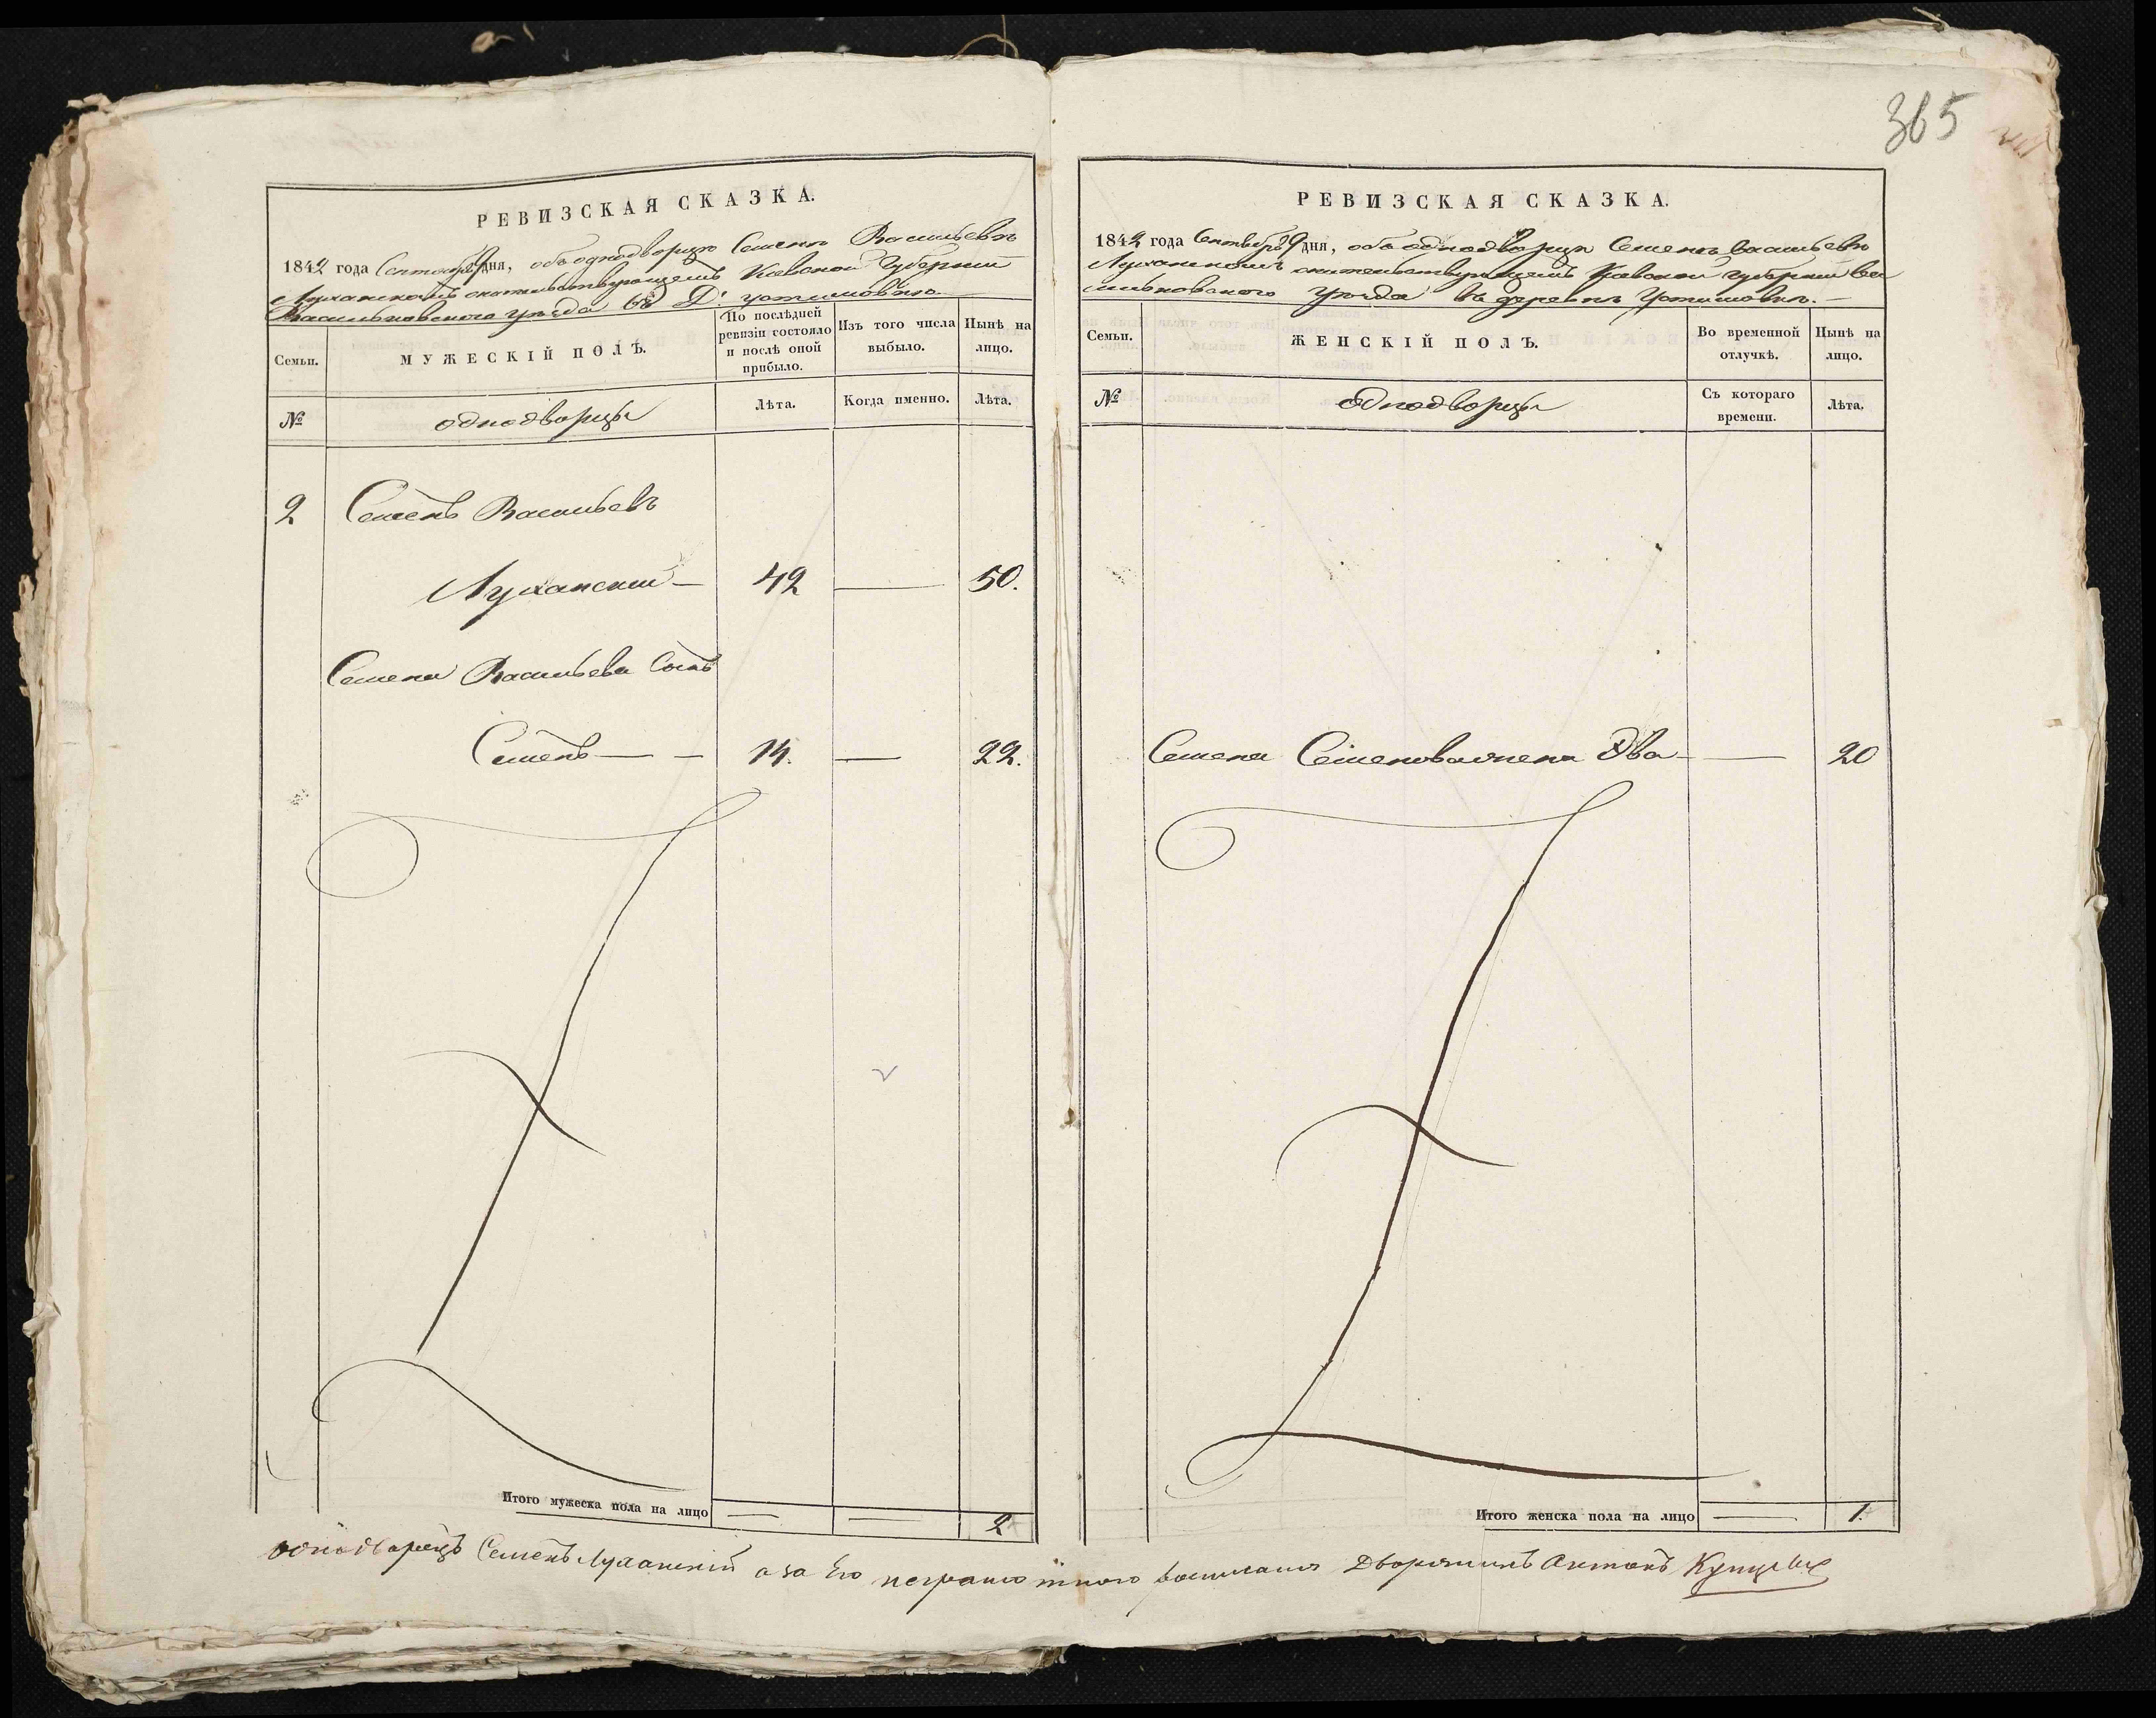 365
РЕВИЗСКАЯ СКАЗКА.
1842 года Сентября 9 дня, объ однодворцѣ Семенѣ Васильевѣ
Луханскомъ жительствующемъ Кіевской Губерніи
Васильковскаго уѣзда въ Д. Устимовкѣ
Семьи.
МУЖЕСКІЙ ПОЛЪ.
По послѣдней ревизіи состояло и послѣ оной прибыло.
Изъ того числа выбыло.
Нынѣ на лицо.
№
однодворцы
Лѣта.
Когда именно.
Лѣта.
2 Семенъ Васильевъ
Луханскій — 42 — 50.
Семена Васильева Сынъ
Семенъ — — 14. — 22.
Итого мужеска пола на лицо — — 2
РЕВИЗСКАЯ СКАЗКА.
1842 года Сентября 9 дня, объ однодворцѣ Семенѣ Васильевѣ
Луханскомъ жительствующемъ Кіевской Губерніи Ва
сильковскаго уѣзда въ деревнѣ Устимовкѣ. —
Семьи.
ЖЕНСКІЙ ПОЛЪ.
Во временной отлучкѣ.
Нынѣ на лицо.
№
Однодворцы
Съ котораго времени.
Лѣта.
Семена Семенова жена — — 20
Итого женска пола на лицо — 1.
однодворецъ Семенъ Луханскій а за Его неграмотного росписался Дворянинъ Антонъ